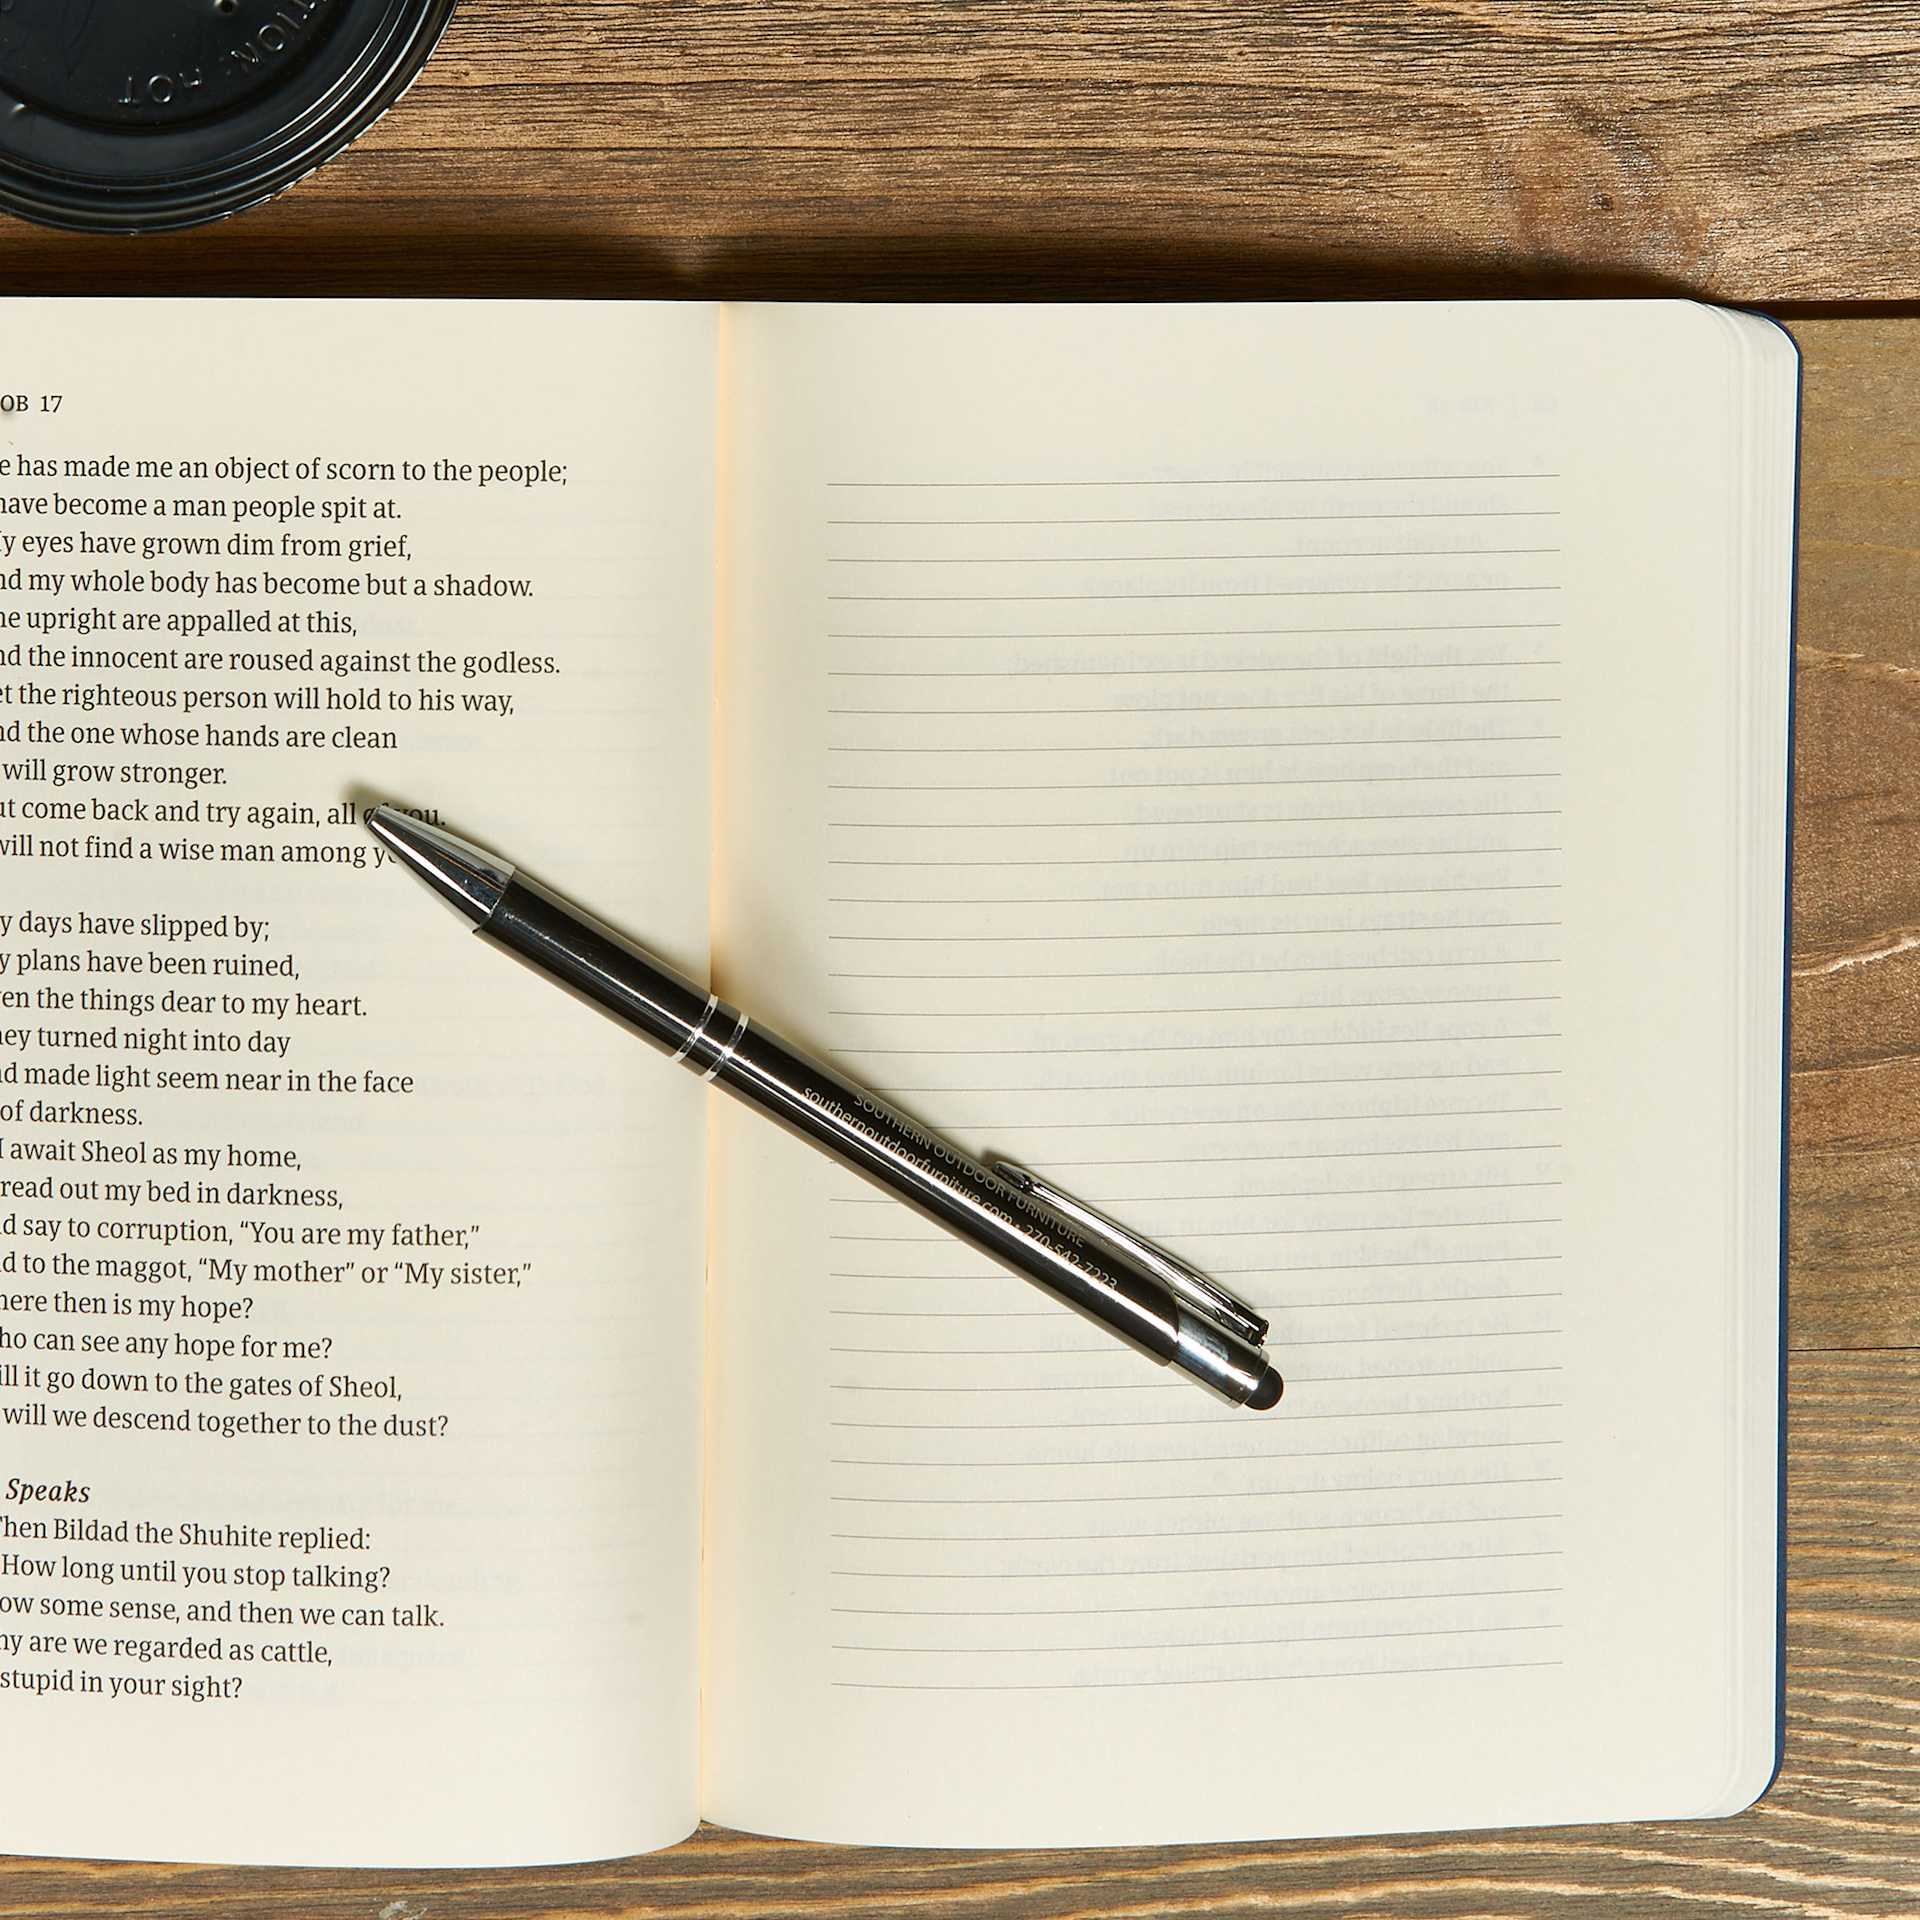 TION: HOT
OB 17
e has made me an object of scorn to the people;
have become a man people spit at.
y eyes have grown dim from grief,
nd my whole body has become but a shadow.
he upright are appalled at this,
nd the innocent are roused against the godless.
et the righteous person will hold to his way,
nd the one whose hands are clean
will grow stronger.
ut come back and try again, all of you.
will not find a wise man among
y days have slipped by;
y plans have been ruined,
ven the things dear to my heart.
hey turned night into day
nd made light seem near in the face
of darkness.
I await Sheol as my home,
read out my bed in darkness,
d say to corruption, “You are my father,”
d to the maggot, “My mother” or “My sister,”
here then is my hope?
ho can see any hope for me?
ill it go down to the gates of Sheol,
will we descend together to the dust?
Speaks
Then Bildad the Shuhite replied:
How long until you stop talking?
ow some sense, and then we can talk.
hy are we regarded as cattle,
stupid in your sight?
SOUTHERN OUTDOOR FURNITURE
southernoutdoorfurniture.com • 270-542-7223